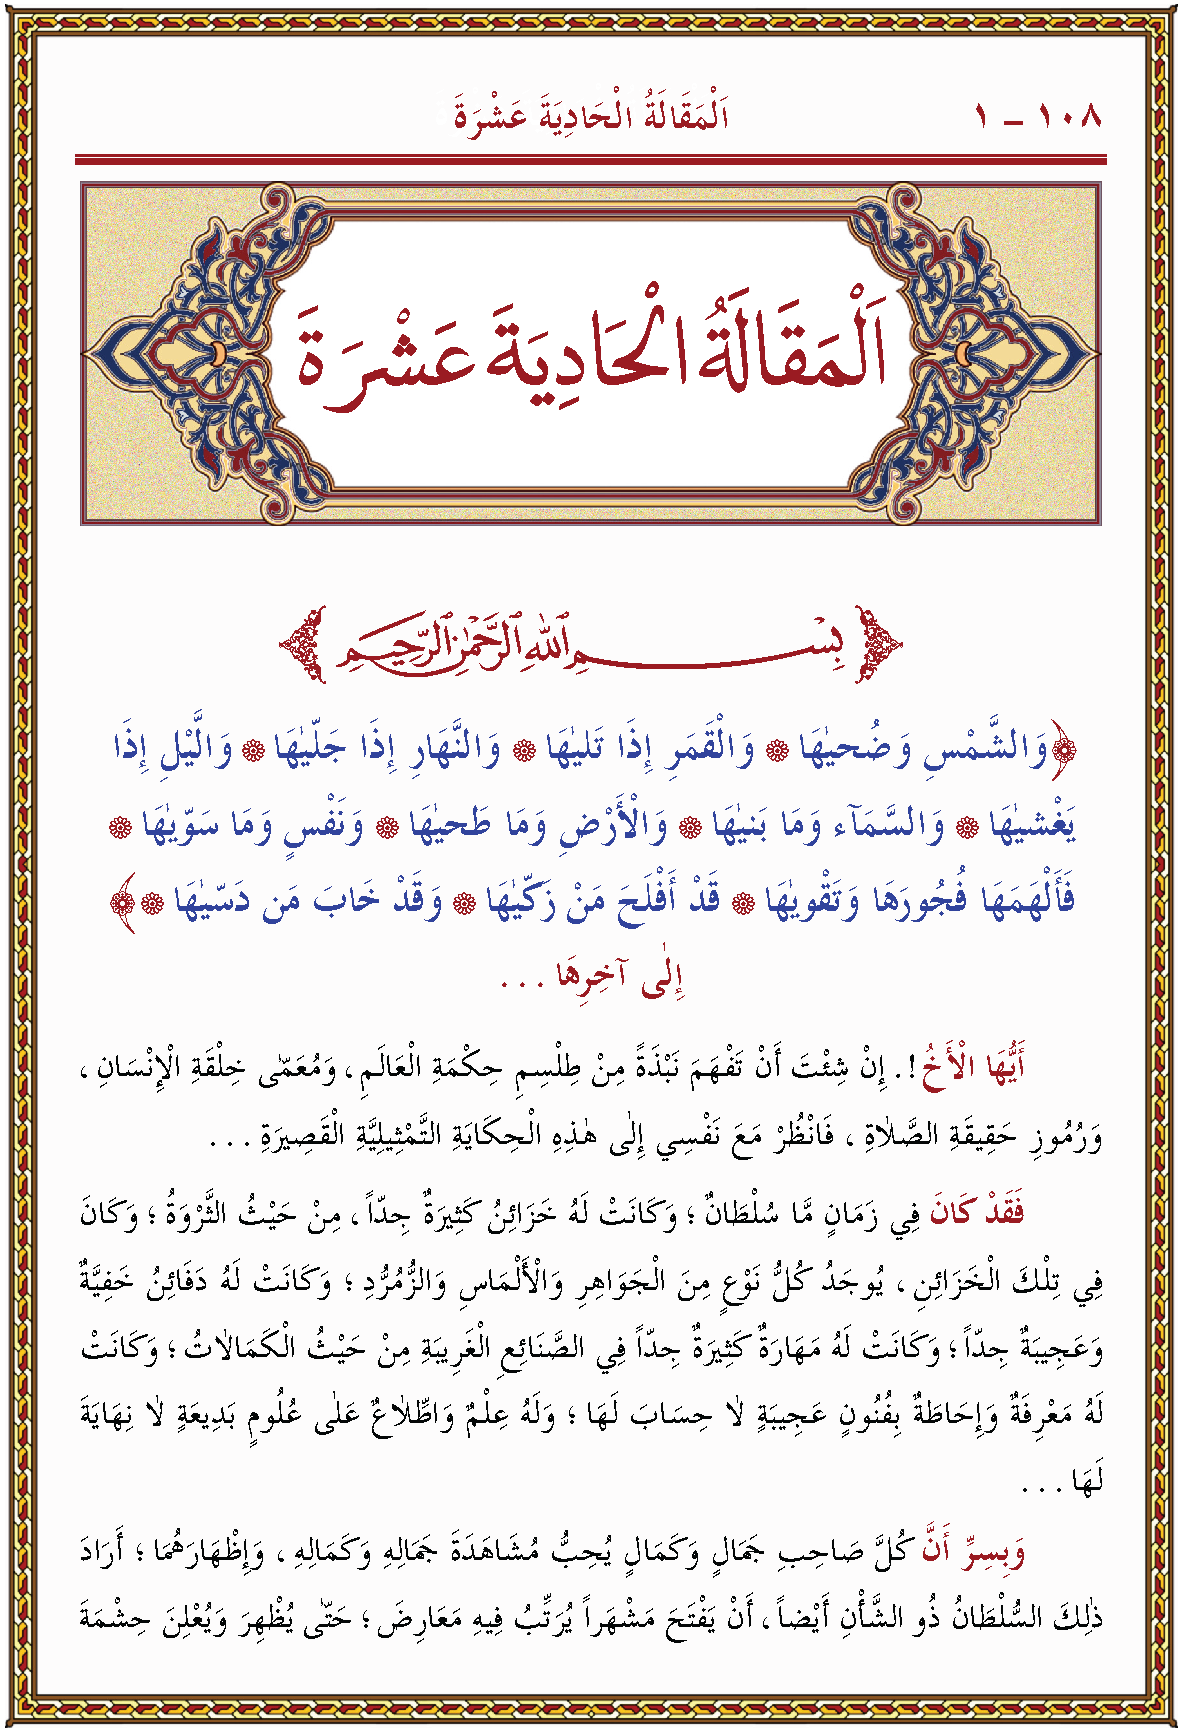 ١٠٨ – ١ اَلْمَقَالَةُ الْحَادِيَةَ عَشْرَةَ
اَلْمَقَالَةُ الْحَادِيَةَ عَشْرَةَ
بِسْمِ ٱللهِ ٱلرَّحْمٰنِ ٱلرَّحِيمِ
﴿وَالشَّمْسِ وَضُحَيٰهَا ۞ وَالْقَمَرِ إِذَا تَلَيٰهَا ۞ وَالنَّهَارِ إِذَا جَلَّيٰهَا ۞ وَالَّيْلِ إِذَا
يَغْشَيٰهَا ۞ وَالسَّمَآءِ وَمَا بَنَيٰهَا ۞ وَالْأَرْضِ وَمَا طَحَيٰهَا ۞ وَنَفْسٍ وَمَا سَوَّيٰهَا ۞
فَأَلْهَمَهَا فُجُورَهَا وَتَقْوَيٰهَا ۞ قَدْ أَفْلَحَ مَنْ زَكَّيٰهَا ۞ وَقَدْ خَابَ مَنْ دَسَّيٰهَا ۞﴾
إِلٰى آخِرِهَا . . .
أَيُّهَا الْأَخُ ! . إِنْ شِئْتَ أَنْ تَفْهَمَ نَبْذَةً مِنْ طِلْسِمِ حِكْمَةِ الْعَالَمِ ، وَمُعَمّٰى خِلْقَةِ الْإِنْسَانِ ،
وَرُمُوزِ حَقِيقَةِ الصَّلاٰةِ ، فَانْظُرْ مَعَ نَفْسِي إِلٰى هٰذِهِ الْحِكَايَةِ التَّمْثِيلِيَّةِ الْقَصِيرَةِ . . .
فَقَدْ كَانَ فِي زَمَانٍ مَّا سُلْطَانٌ ؛ وَكَانَتْ لَهُ خَزَائِنُ كَثِيرَةٌ جِدّاً ، مِنْ حَيْثُ الثَّرْوَةُ ؛ وَكَانَ
فِي تِلْكَ الْخَزَائِنِ ، يُوجَدُ كُلُّ نَوْعٍ مِنَ الْجَوَاهِرِ وَالْأَلْمَاسِ وَالزُّمُرُّدِ ؛ وَكَانَتْ لَهُ دَفَائِنُ خَفِيَّةٌ
وَعَجِيبَةٌ جِدّاً ؛ وَكَانَتْ لَهُ مَهَارَةٌ كَثِيرَةٌ جِدّاً فِي الصَّنَائِعِ الْغَرِيبَةِ مِنْ حَيْثُ الْكَمَالاٰتُ ؛ وَكَانَتْ
لَهُ مَعْرِفَةٌ وَإِحَاطَةٌ بِفُنُونٍ عَجِيبَةٍ لاٰ حِسَابَ لَهَا ؛ وَلَهُ عِلْمٌ وَاطِّلاٰعٌ عَلٰى عُلُومٍ بَدِيعَةٍ لاٰ نِهَايَةَ
لَهَا . . .
وَبِسِرِّ أَنَّ كُلَّ صَاحِبِ جَمَالٍ وَكَمَالٍ يُحِبُّ مُشَاهَدَةَ جَمَالِهِ وَكَمَالِهِ ، وَإِظْهَارَهُمَا ؛ أَرَادَ
ذٰلِكَ السُّلْطَانُ ذُو الشَّأْنِ أَيْضاً ، أَنْ يَفْتَحَ مَشْهَراً يُرَتِّبُ فِيهِ مَعَارِضَ ؛ حَتّٰى يُظْهِرَ وَيُعْلِنَ حِشْمَةَ